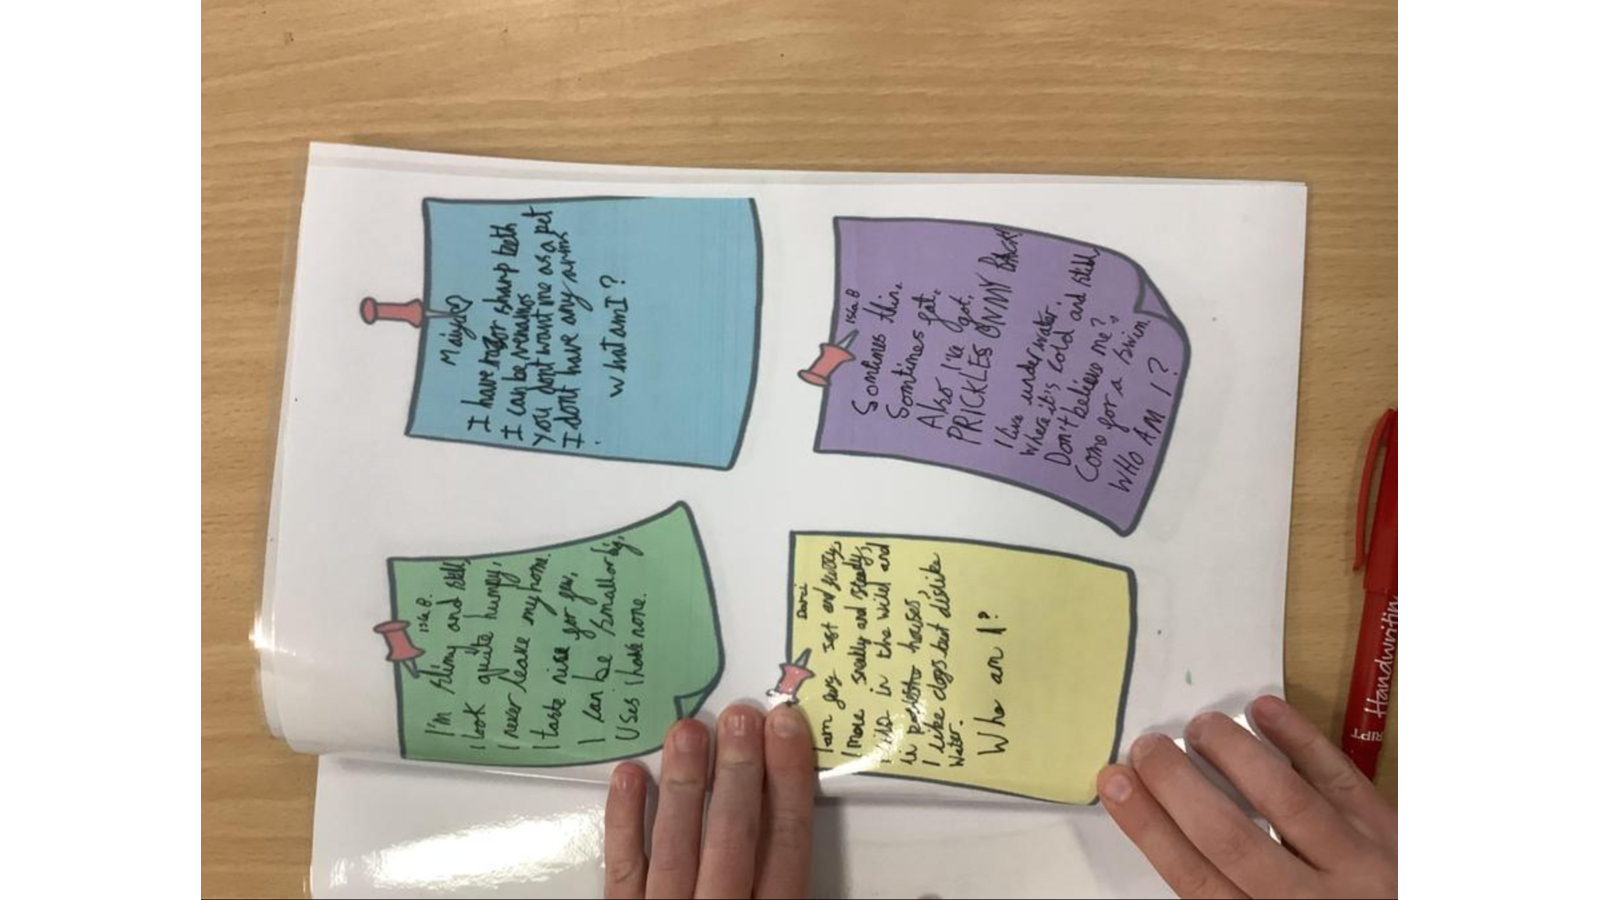 Maiya
I have razor sharp teeth
I can be venamos
You dont want me as a pet
I dont have any arms
What am I?
Isla B
Sometimes thin,
Sometimes fat,
Also I've got,
PRICKLES ON MY BACK!
I live under water,
Where it's cold and still,
Don't believe me?
Come for a swim,
WHO AM I?
Isla B.
I'm slimy and still,
I look quite humpy,
I never leave my home.
I taste nice for few,
I can be small or big,
Uses I have none.
Darci
I am very soft and
I move and
in the wild and
in houses,
I like dogs but dislike
Water.
Who am I?
Handwritin